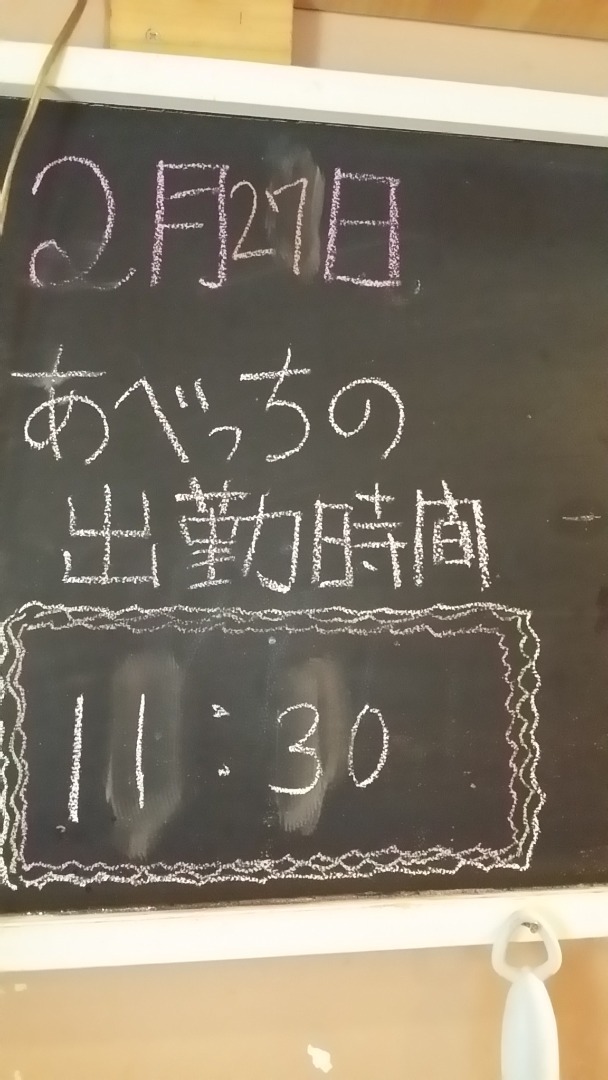 2月27日
あべっちの
出勤時間
11:30